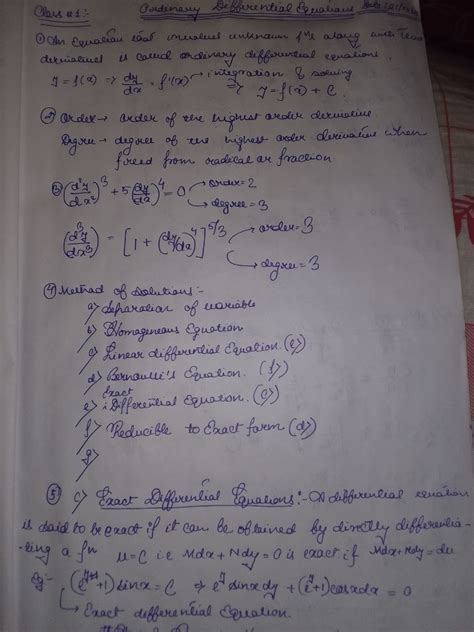 Class #1:
Ordinary Differential Equations Date
① An Equation that involves unknown fns along with
derivatives is called ordinary differential equations.
y = f(x) ⇒ dy/dx = f'(x) → integration & solving
⇒ y = f(x) + C.
② Order → Order of the highest order derivative
Degree → degree of the highest order derivative when
freed from radical or fraction
③ (d²y/dx²)³ + 5(dy/dx)⁴ = 0 → order = 2
→ degree = 3
(d³y/dx³) = [1 + (dy/dx)⁴]^5/3 → order = 3
→ degree = 3
④ Method of Solutions :-
a> Separation of variable
b> Homogeneous Equation
c> Linear differential Equation. (e)
d> Bernaulli's Equation. (f)
e> Exact Differential Equation. (c)
f> Reducible to Exact form (d)
g>
⑤ c> Exact Differential Equations :- A differential equation
is said to be exact if it can be obtained by directly differentia-
ting a fn u = C i.e Mdx + Ndy = 0 is exact if Mdx + Ndy = du
Eg:- sinx = C ⇒ e^y sinx dy + (e^y + 1) cosx dx = 0
→ Exact differential Equation.